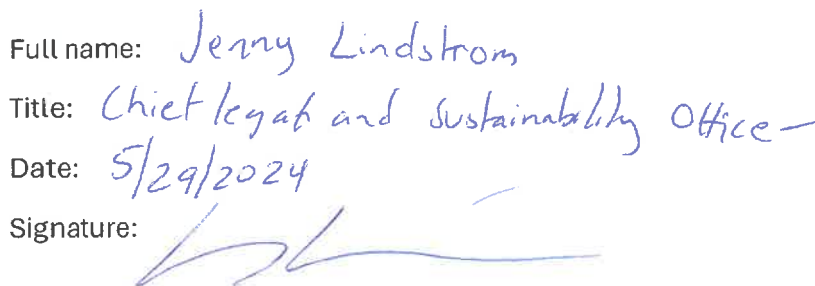 Full name: Jenny Lindstrom
Title: Chief legal and Sustainability Officer
Date: 5/29/2024
Signature: